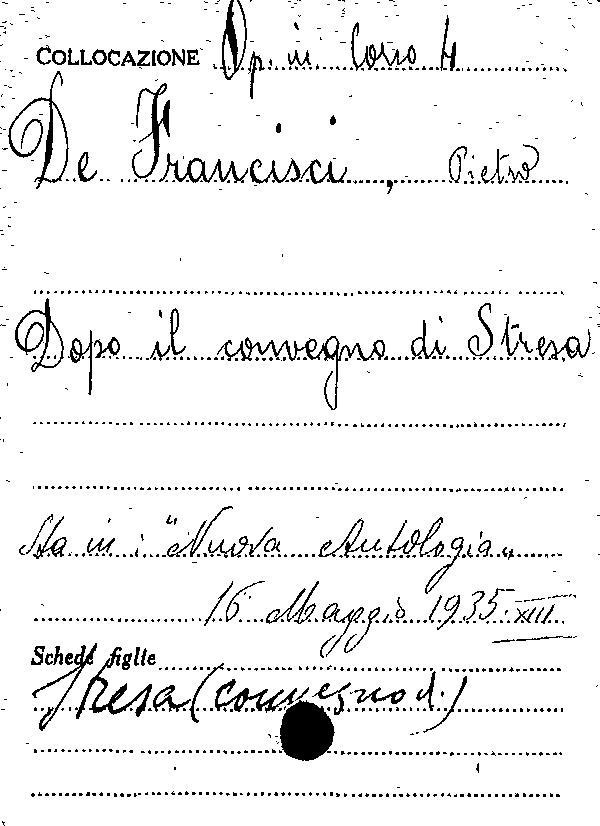 COLLOCAZIONE Op. in Corso 4
De Francisci, Pietro
Dopo il convegno di Stresa
Sta in: "Nuova Antologia„
16 Maggio 1935. XIII
Schede figlie
Stresa (convegno d.)